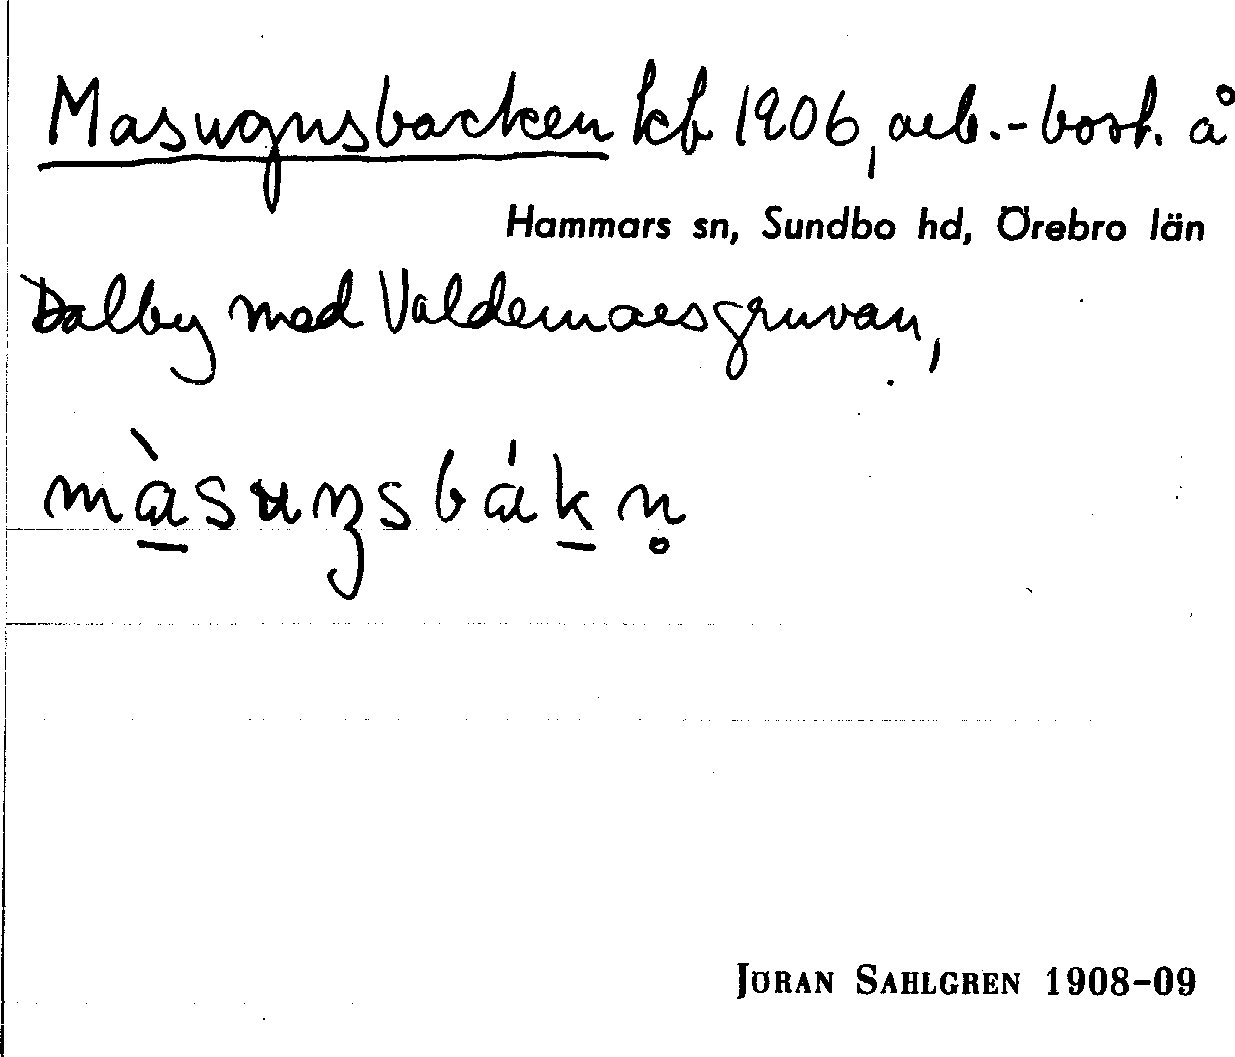 Masugnsbacken kb 1906, arb.-bost. å
Hammars sn, Sundbo hd, Örebro län
Dalby med Valdemarsgruvan,
màsuŋsbákn̥
JÖRAN SAHLGREN 1908-09